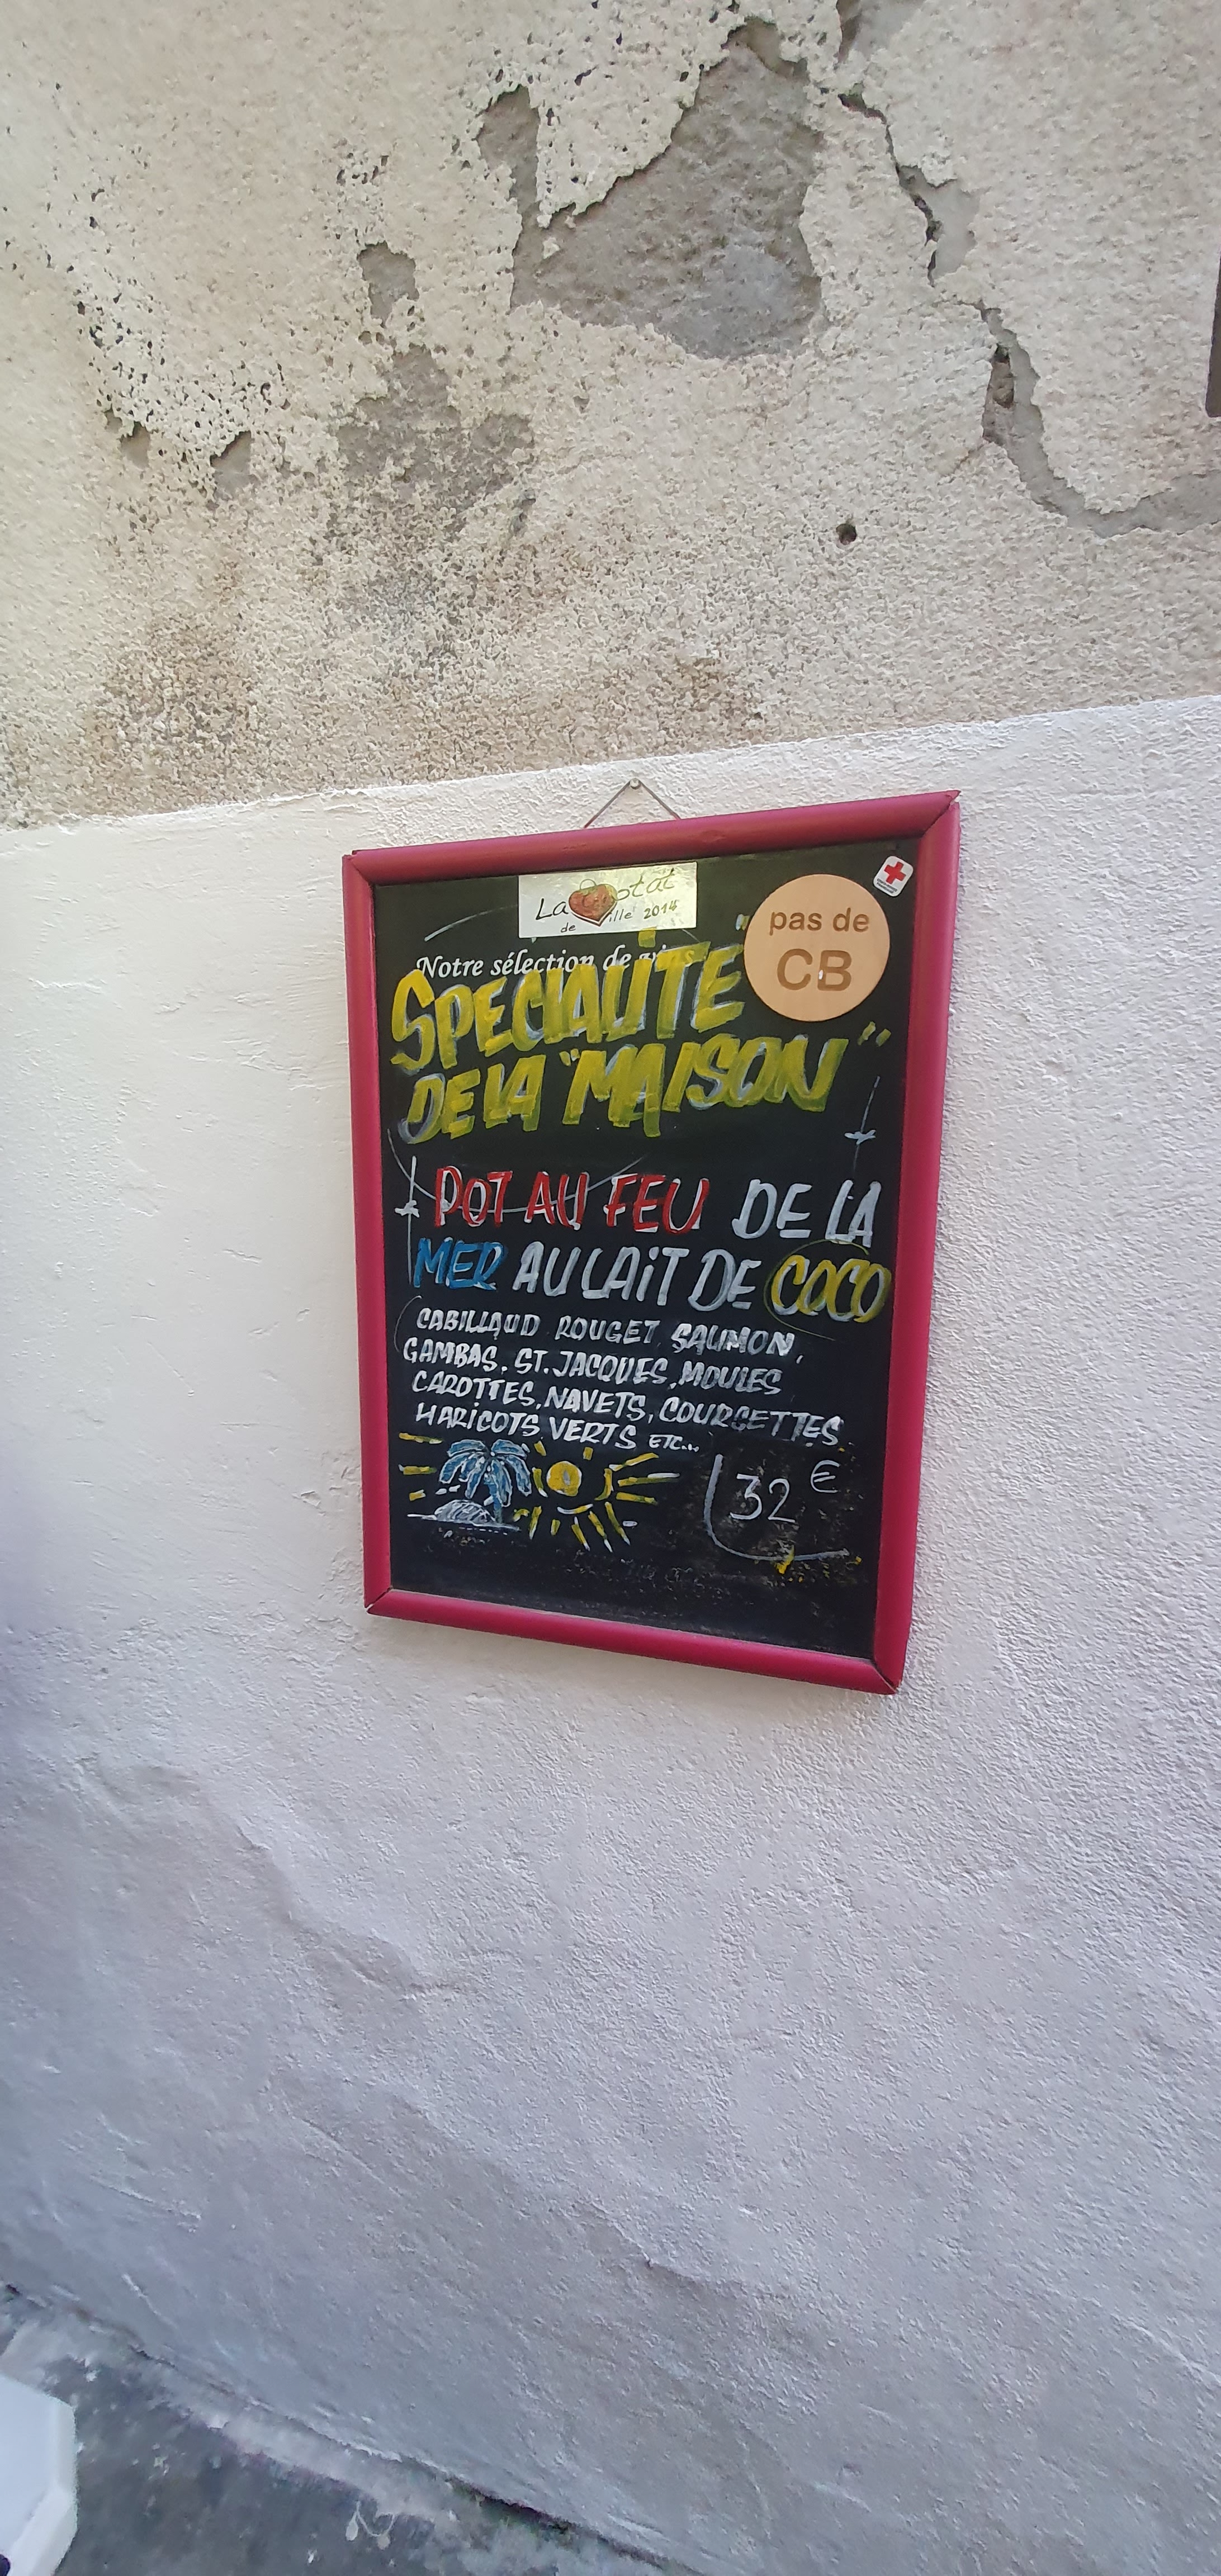 La Ciotat
de ville 2014
pas de
CB
Notre sélection de vins
SPECIALITE
DE LA "MAISON"
POT AU FEU DE LA
MER AU LAIT DE COCO
CABILLAUD ROUGET SAUMON,
GAMBAS, ST. JACQUES, MOULES
CAROTTES, NAVETS, COURGETTES
HARICOTS VERTS ETC...
32 €